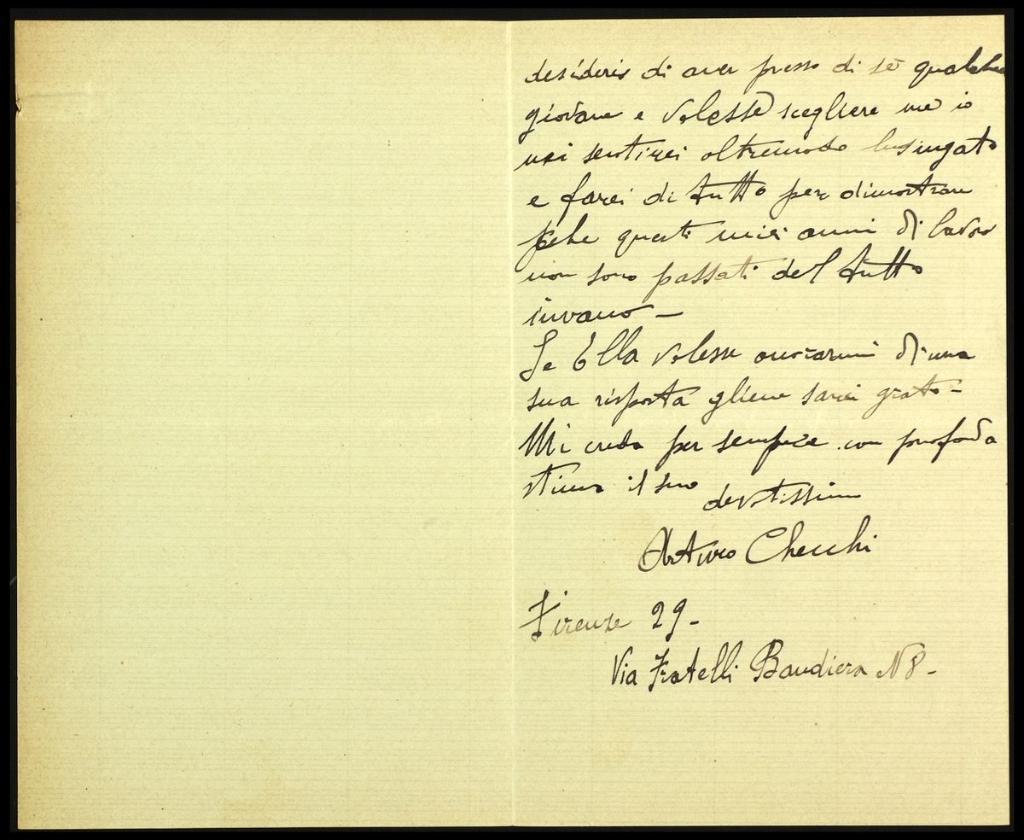 desiderio di aver presso di sè qualche
giovane e volesse scegliere me io
mi sentirei oltremodo lusingato
e farei di tutto per dimostrare
che questi miei anni di lavoro
non sono passati del tutto
invano -
Se Ella volesse onorarmi di una
sua risposta gliene sarei grato -
Mi creda per sempre con profonda
stima il suo devotissimo
Arturo Checchi
Firenze 29 -
Via Fratelli Bandiera N 8 -